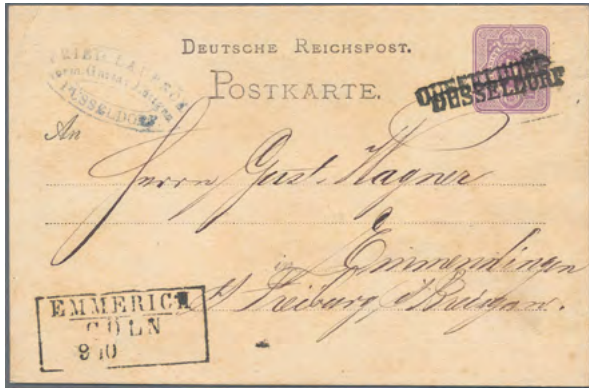 DEUTSCHE REICHSPOST.
POSTKARTE.
vorm. Gustav
DÜSSELDORF
DUSSELDORF
An
Herrn Gust. Wagner
in
Emmendingen
b/ Freiburg i/Breisgau.
EMMERICH
CÖLN
9 10